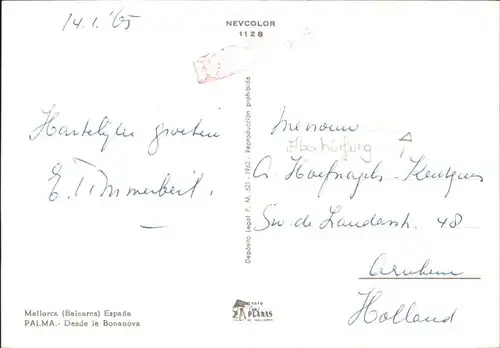 14.1.'65
NEVCOLOR
1128
Hartelijke groeten
E. Timmerbeil.
Depósito Legal P. M. 621 - 1962 - Reproducción prohibida
Mevrouw
A. Hoefnagels-
Sw. de Landasstr. 48
Arnhem
Holland
Mallorca (Baleares) España
PALMA.- Desde la Bonanova
FOTO
PLANAS